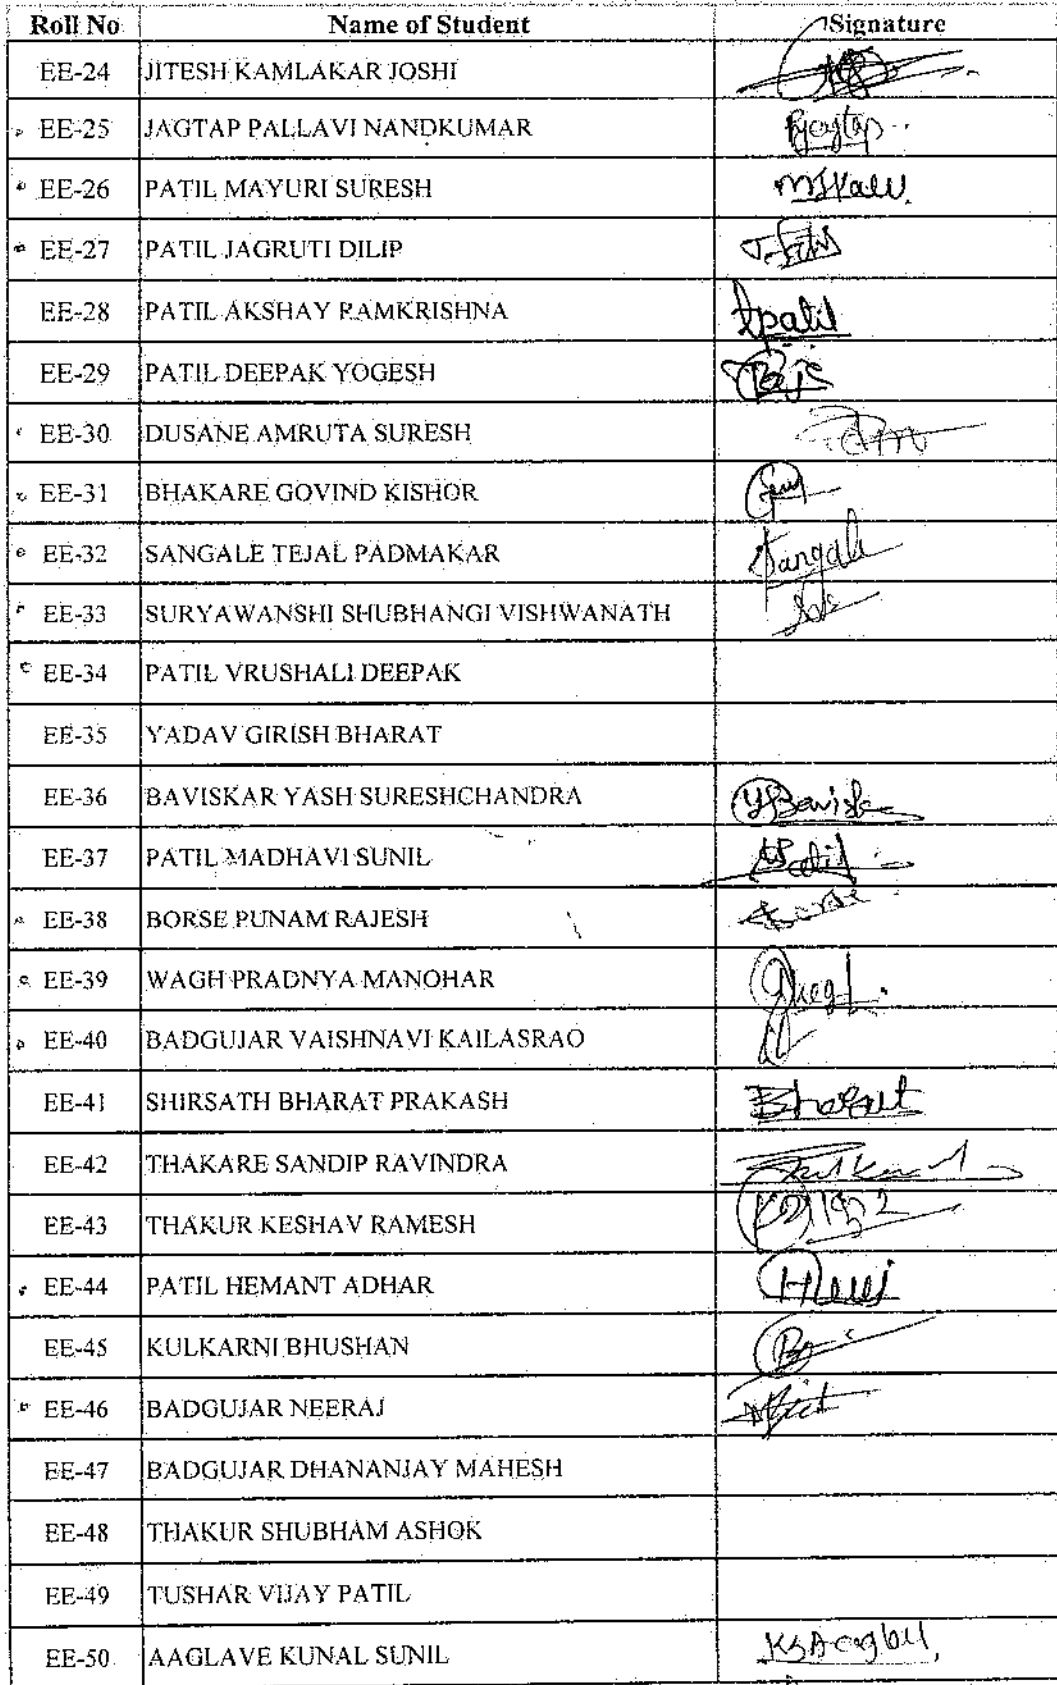 Roll No Name of Student Signature
EE-24 JITESH KAMLAKAR JOSHI
EE-25 JAGTAP PALLAVI NANDKUMAR Pjagtap
EE-26 PATIL MAYURI SURESH
EE-27 PATIL JAGRUTI DILIP
EE-28 PATIL AKSHAY RAMKRISHNA Apatil
EE-29 PATIL DEEPAK YOGESH
EE-30 DUSANE AMRUTA SURESH
EE-31 BHAKARE GOVIND KISHOR
EE-32 SANGALE TEJAL PADMAKAR Sangale
EE-33 SURYAWANSHI SHUBHANGI VISHWANATH
EE-34 PATIL VRUSHALI DEEPAK
EE-35 YADAV GIRISH BHARAT
EE-36 BAVISKAR YASH SURESHCHANDRA
EE-37 PATIL MADHAVI SUNIL
EE-38 BORSE PUNAM RAJESH
EE-39 WAGH PRADNYA MANOHAR
EE-40 BADGUJAR VAISHNAVI KAILASRAO
EE-41 SHIRSATH BHARAT PRAKASH Bharat
EE-42 THAKARE SANDIP RAVINDRA
EE-43 THAKUR KESHAV RAMESH
EE-44 PATIL HEMANT ADHAR
EE-45 KULKARNI BHUSHAN
EE-46 BADGUJAR NEERAJ
EE-47 BADGUJAR DHANANJAY MAHESH
EE-48 THAKUR SHUBHAM ASHOK
EE-49 TUSHAR VIJAY PATIL
EE-50 AAGLAVE KUNAL SUNIL